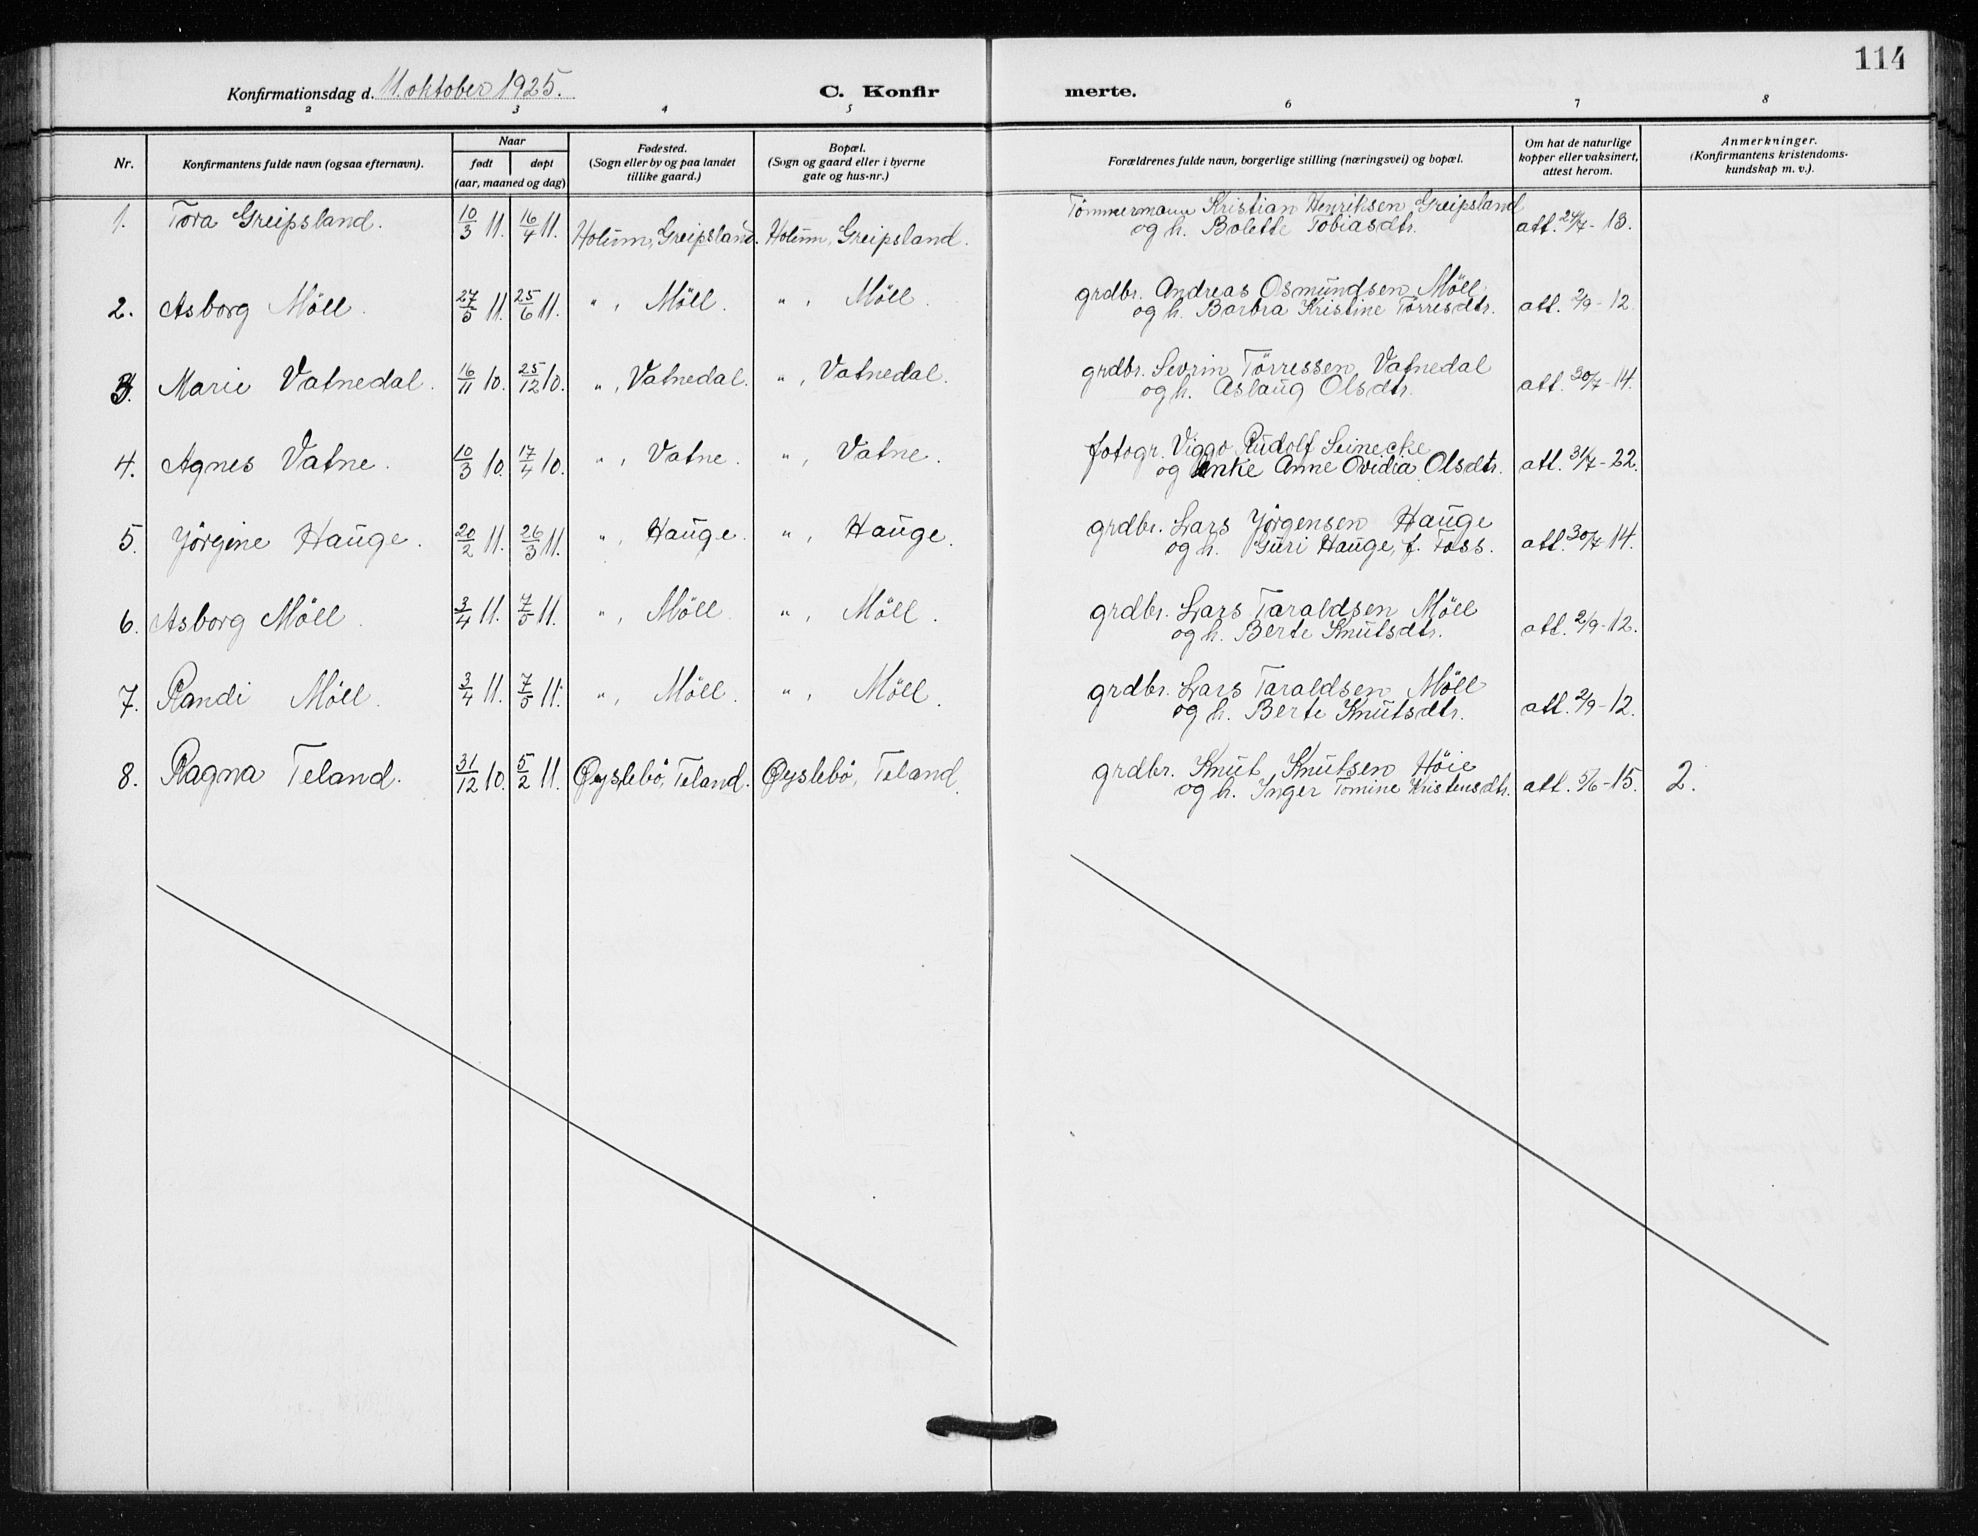 114
Konfirmationsdag d. 11. oktober 1925. C. Konfir merte.
2 3 4 5 6 7 8
Nr. Konfirmantens fulde navn (ogsaa efternavn). Naar født døpt (aar, maaned og dag) Fødested. (Sogn eller by og paa landet tillike gaard.) Bopæl. (Sogn og gaard eller i byerne gate og hus-nr.) Forældrenes fulde navn, borgerlige stilling (næringsvei) og bopæl. Om hat de naturlige kopper eller vaksinert, attest herom. Anmerkninger. (Konfirmantens kristendoms-kundskap m. v.).
1. Tora Greipsland. 10/3 11. 16/4 11. Holum, Greipsland. Holum, Greipsland. Tömmermann Kristian Henriksen Greipsland
og h. Bolette Tobiasdtr. att. 24/7-13.
2. Asborg Möll. 27/5 11. 25/6 11. ", Möll. ", Möll. grdbr. Andreas Osmundsen Möll
og h. Barbra Kristine Tørresdtr. att. 2/9-12
3. Marie Vatnedal. 16/11 10. 25/12 10. ", Vatnedal. ", Vatnedal. grdbr. Sevrin Tørressen Vatnedal
og h. Aslaug Olsdtr. att. 30/7-14.
4. Agnes Vatne. 10/3 10. 17/4 10. ", Vatne. ", Vatne. fotogr. Viggo Rudolf Seinecke
og enke Anne Ovidia Olsdtr. att. 31/7-22.
5. Jörgine Hauge. 20/2 11. 26/3 11. ", Hauge. ", Hauge. grdbr. Lars Jörgensen Hauge
og h. Guri Hauge, f. Foss. att. 30/7-14.
6. Asborg Möll. 3/4 11. 7/5 11. ", Möll. ", Möll. grdbr. Lars Taraldsen Möll
og h. Berte Knutsdtr. att. 2/9-12.
7. Randi Möll. 3/4 11. 7/5 11. ", Möll. ", Möll. grdbr. Lars Taraldsen Möll
og h. Berte Knutsdtr. att. 2/9-12.
8. Ragna Teland. 31/12 10. 5/2 11. Øyslebö, Teland. Øyslebö, Teland. grdbr. Knut Knutsen Höie
og h. Inger Tomine Kristensdtr. att. 5/6-15. 2.